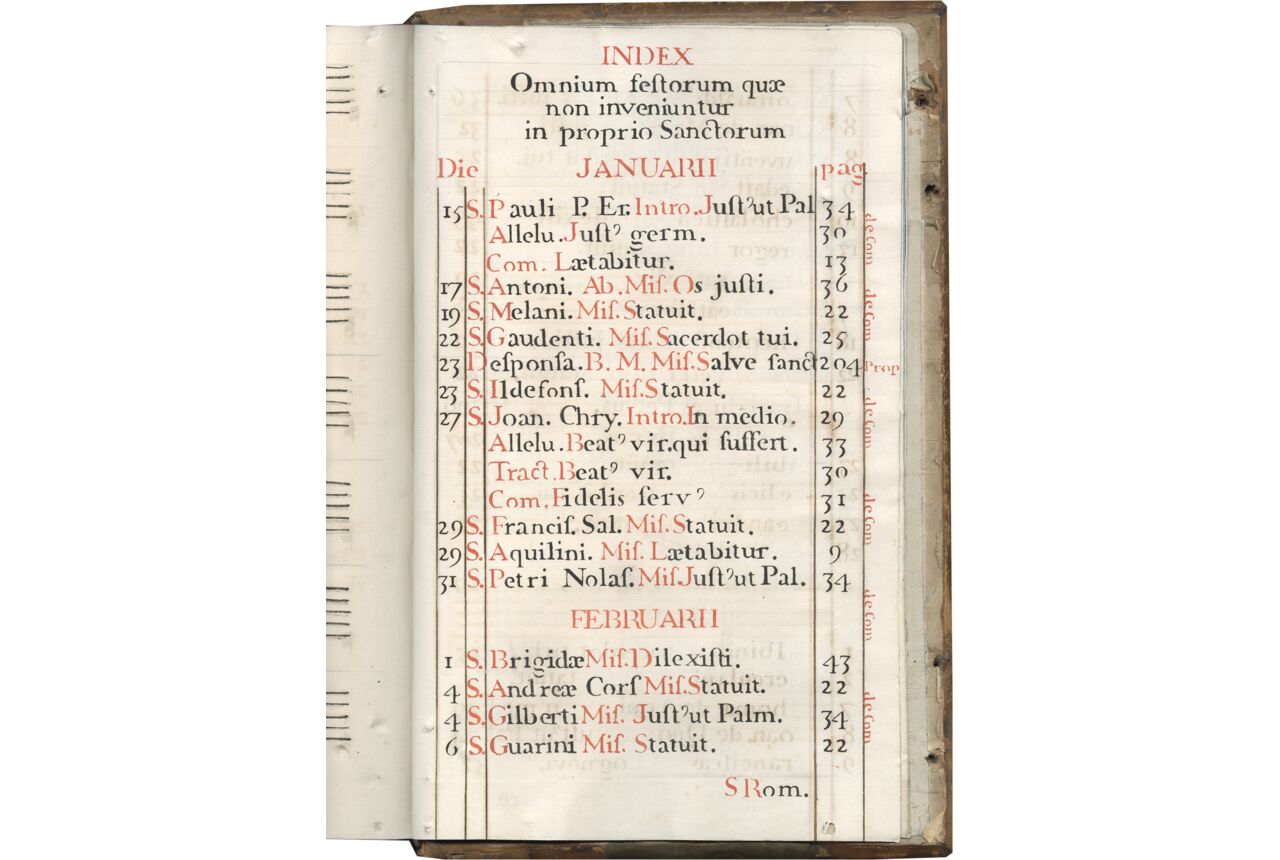 INDEX
Omnium feſtorum quæ
non inveniuntur
in proprio Sanctorum
Die JANUARII pag.
15 S. Pauli P. Er. Intro. Juſtꝰ ut Pal 34
Allelu. Juſtꝰ germ. 30 de Com
Com. Lætabitur. 13
17 S. Antoni. Ab. Miſ. Os juſti. 36
19 S. Melani. Miſ. Statuit. 22 de Com
22 S. Gaudenti. Miſ. Sacerdot tui. 25
23 Deſponſa. B. M. Miſ. Salve ſanct 204 Prop
23 S. Ildefonſ. Miſ. Statuit. 22
27 S. Joan. Chry. Intro. In medio. 29 de Com
Allelu. Beatꝰ vir. qui ſuffert. 33
Tract. Beatꝰ vir. 30
Com. Fidelis ſervꝰ 31
29 S. Franciſ. Sal. Miſ. Statuit. 22 de Com
29 S. Aquilini. Miſ. Lætabitur. 9
31 S. Petri Nolaſ. Miſ Juſtꝰ ut Pal. 34
FEBRUARII de Com
1 S. Brigidæ Miſ. Dilexiſti. 43
4 S. Andreæ Corſ Miſ. Statuit. 22
4 S. Gilberti Miſ. Juſtꝰ ut Palm. 34 de Com
6 S. Guarini Miſ. Statuit. 22
S Rom.